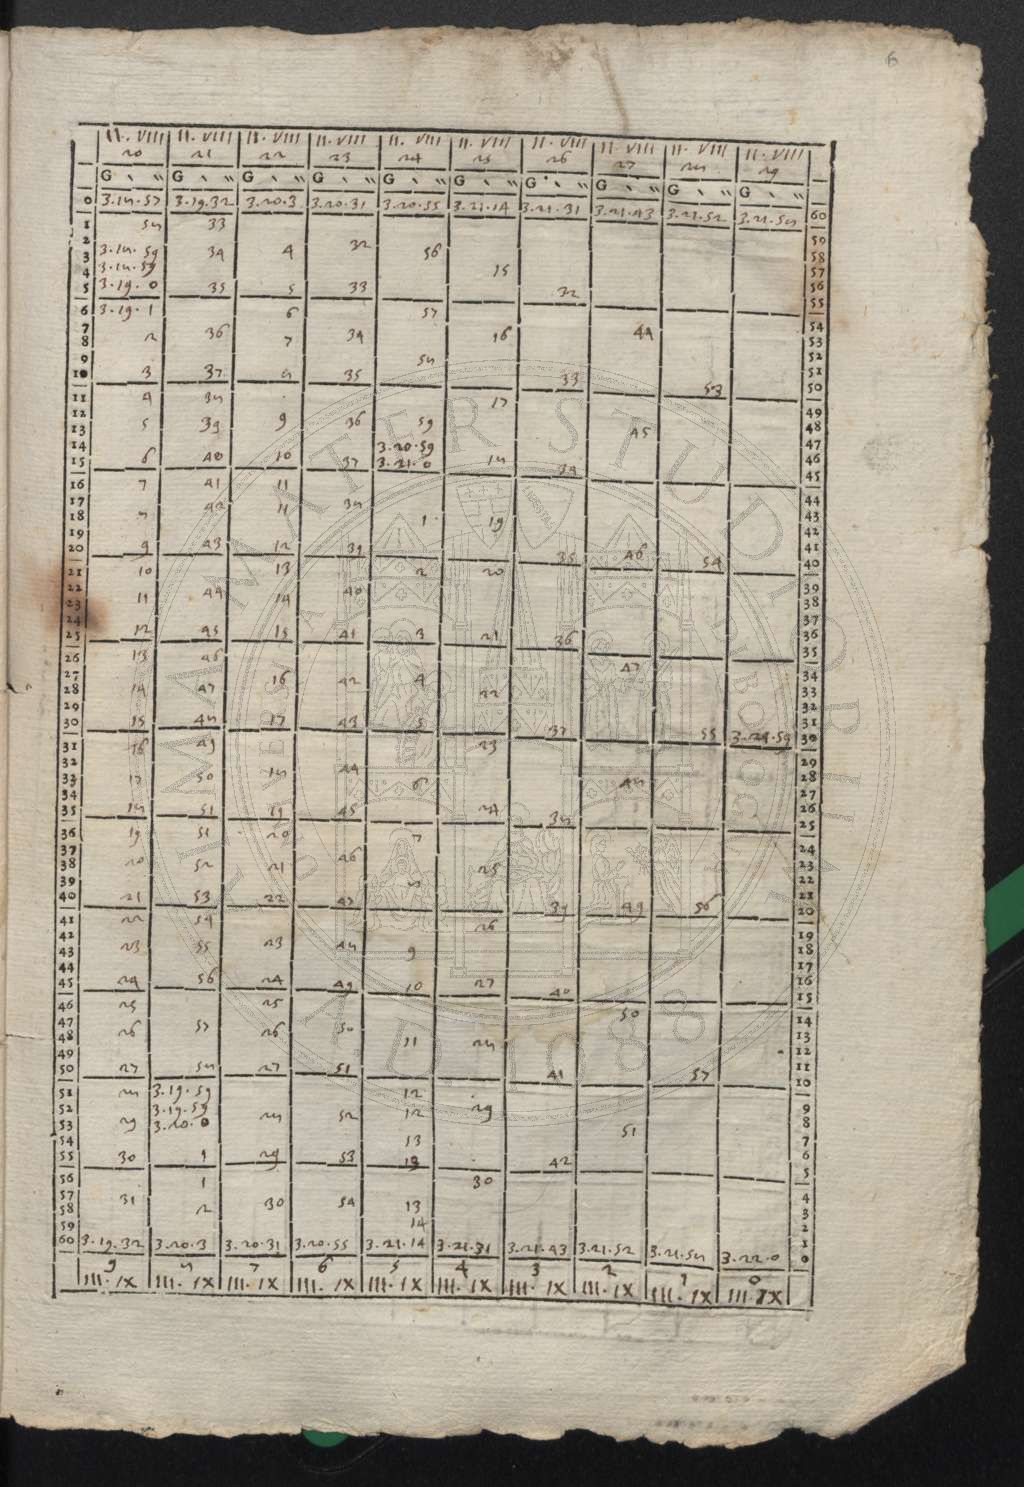 6
II. VIII II. VIII II. VIII II. VIII II. VIII II. VIII II. VIII II. VIII II. VIII II. VIII
20 21 22 23 24 25 26 27 28 29
G ` `` G ` `` G ` `` G ` `` G ` `` G ` `` G ` `` G ` `` G ` `` G ` ``
0 3.18.57 3.19.32 3.20.3 3.20.31 3.20.55 3.21.14 3.21.31 3.21.43 3.21.52 3.21.58 60
1 58 33 59
2 32 58
3 3.18.59 34 4 56 57
4 3.18.59 15 56
5 3.19.0 35 5 33 32 55
6 3.19.1 6 57 54
7 36 34 16 44 53
8 2 7 52
9 58 51
10 3 37 8 35 33 53 50
11 4 38 17 49
12 48
13 5 39 9 36 59 45 47
14 3.20.59 46
15 6 40 10 37 3.21.0 18 34 45
16 7 41 11 44
17 38 43
18 8 42 11 1 19 42
19 41
20 9 43 12 39 35 46 54 40
21 10 13 2 20 39
22 44 40 38
23 11 14 37
24 36
25 12 45 15 41 3 21 36 35
26 13 46 47 34
27 16 42 4 33
28 14 47 22 32
29 31
30 15 48 17 43 5 37 55 3.21.59 30
31 16 49 23 29
32 44 28
33 17 50 18 6 48 27
34 26
35 18 51 19 45 24 38 25
36 19 51 20 7 24
37 46 23
38 20 52 21 25 22
39 8 21
40 21 53 22 47 39 49 56 20
41 22 54 26 19
42 18
43 23 55 23 48 9 17
44 16
45 24 56 24 49 10 27 40 15
46 25 25 50 14
47 57 13
48 26 26 50 11 28 12
49 11
50 27 58 27 51 41 57 10
51 28 3.19.59 12 9
52 3.19.59 12 29 8
53 29 3.20.0 28 52 51 7
54 13 6
55 30 1 29 53 13 42 5
56 1 30 4
57 31 3
58 2 30 54 13 2
59 14 1
60 3.19.32 3.20.3 3.20.31 3.20.55 3.21.14 3.21.31 3.21.43 3.21.52 3.21.58 3.22.0 0
9 8 7 6 5 4 3 2 1 0
III. IX III. IX III. IX III. IX III. IX III. IX III. IX III. IX III. IX III. IX
ALMA MATER STUDIORUM
A.D. 1088